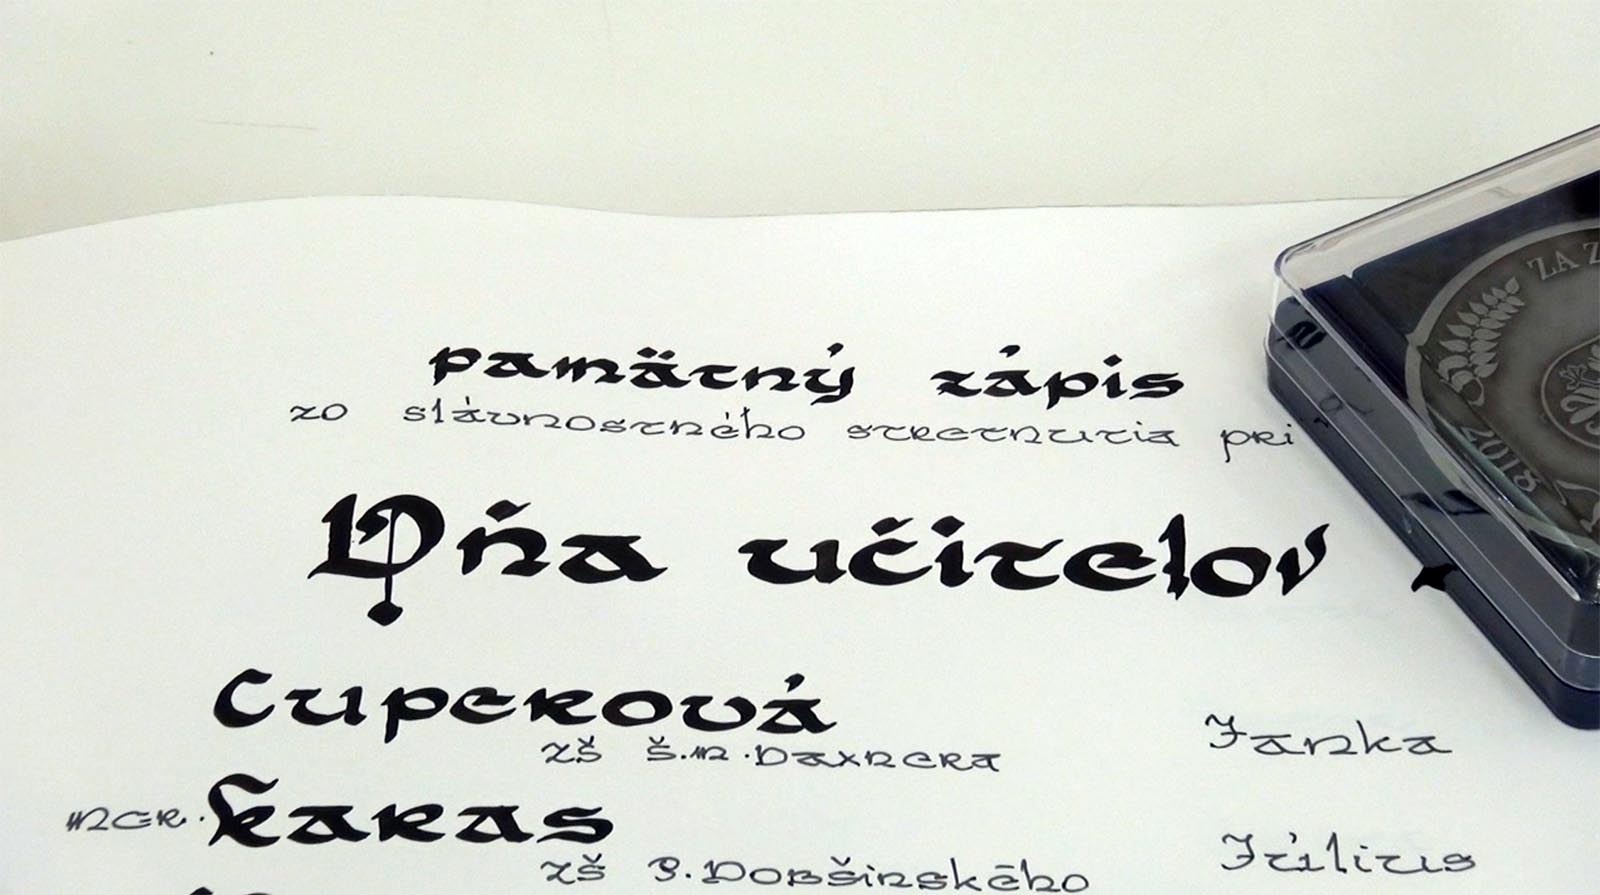 pamätný zápis
zo slávnostného stretnutia pri
Dňa učitelov
Cuperová Janka
ZŠ Š.M.Daxnera
Mgr. Karas Július
ZŠ P.Dobšinského
ZA Z
2018